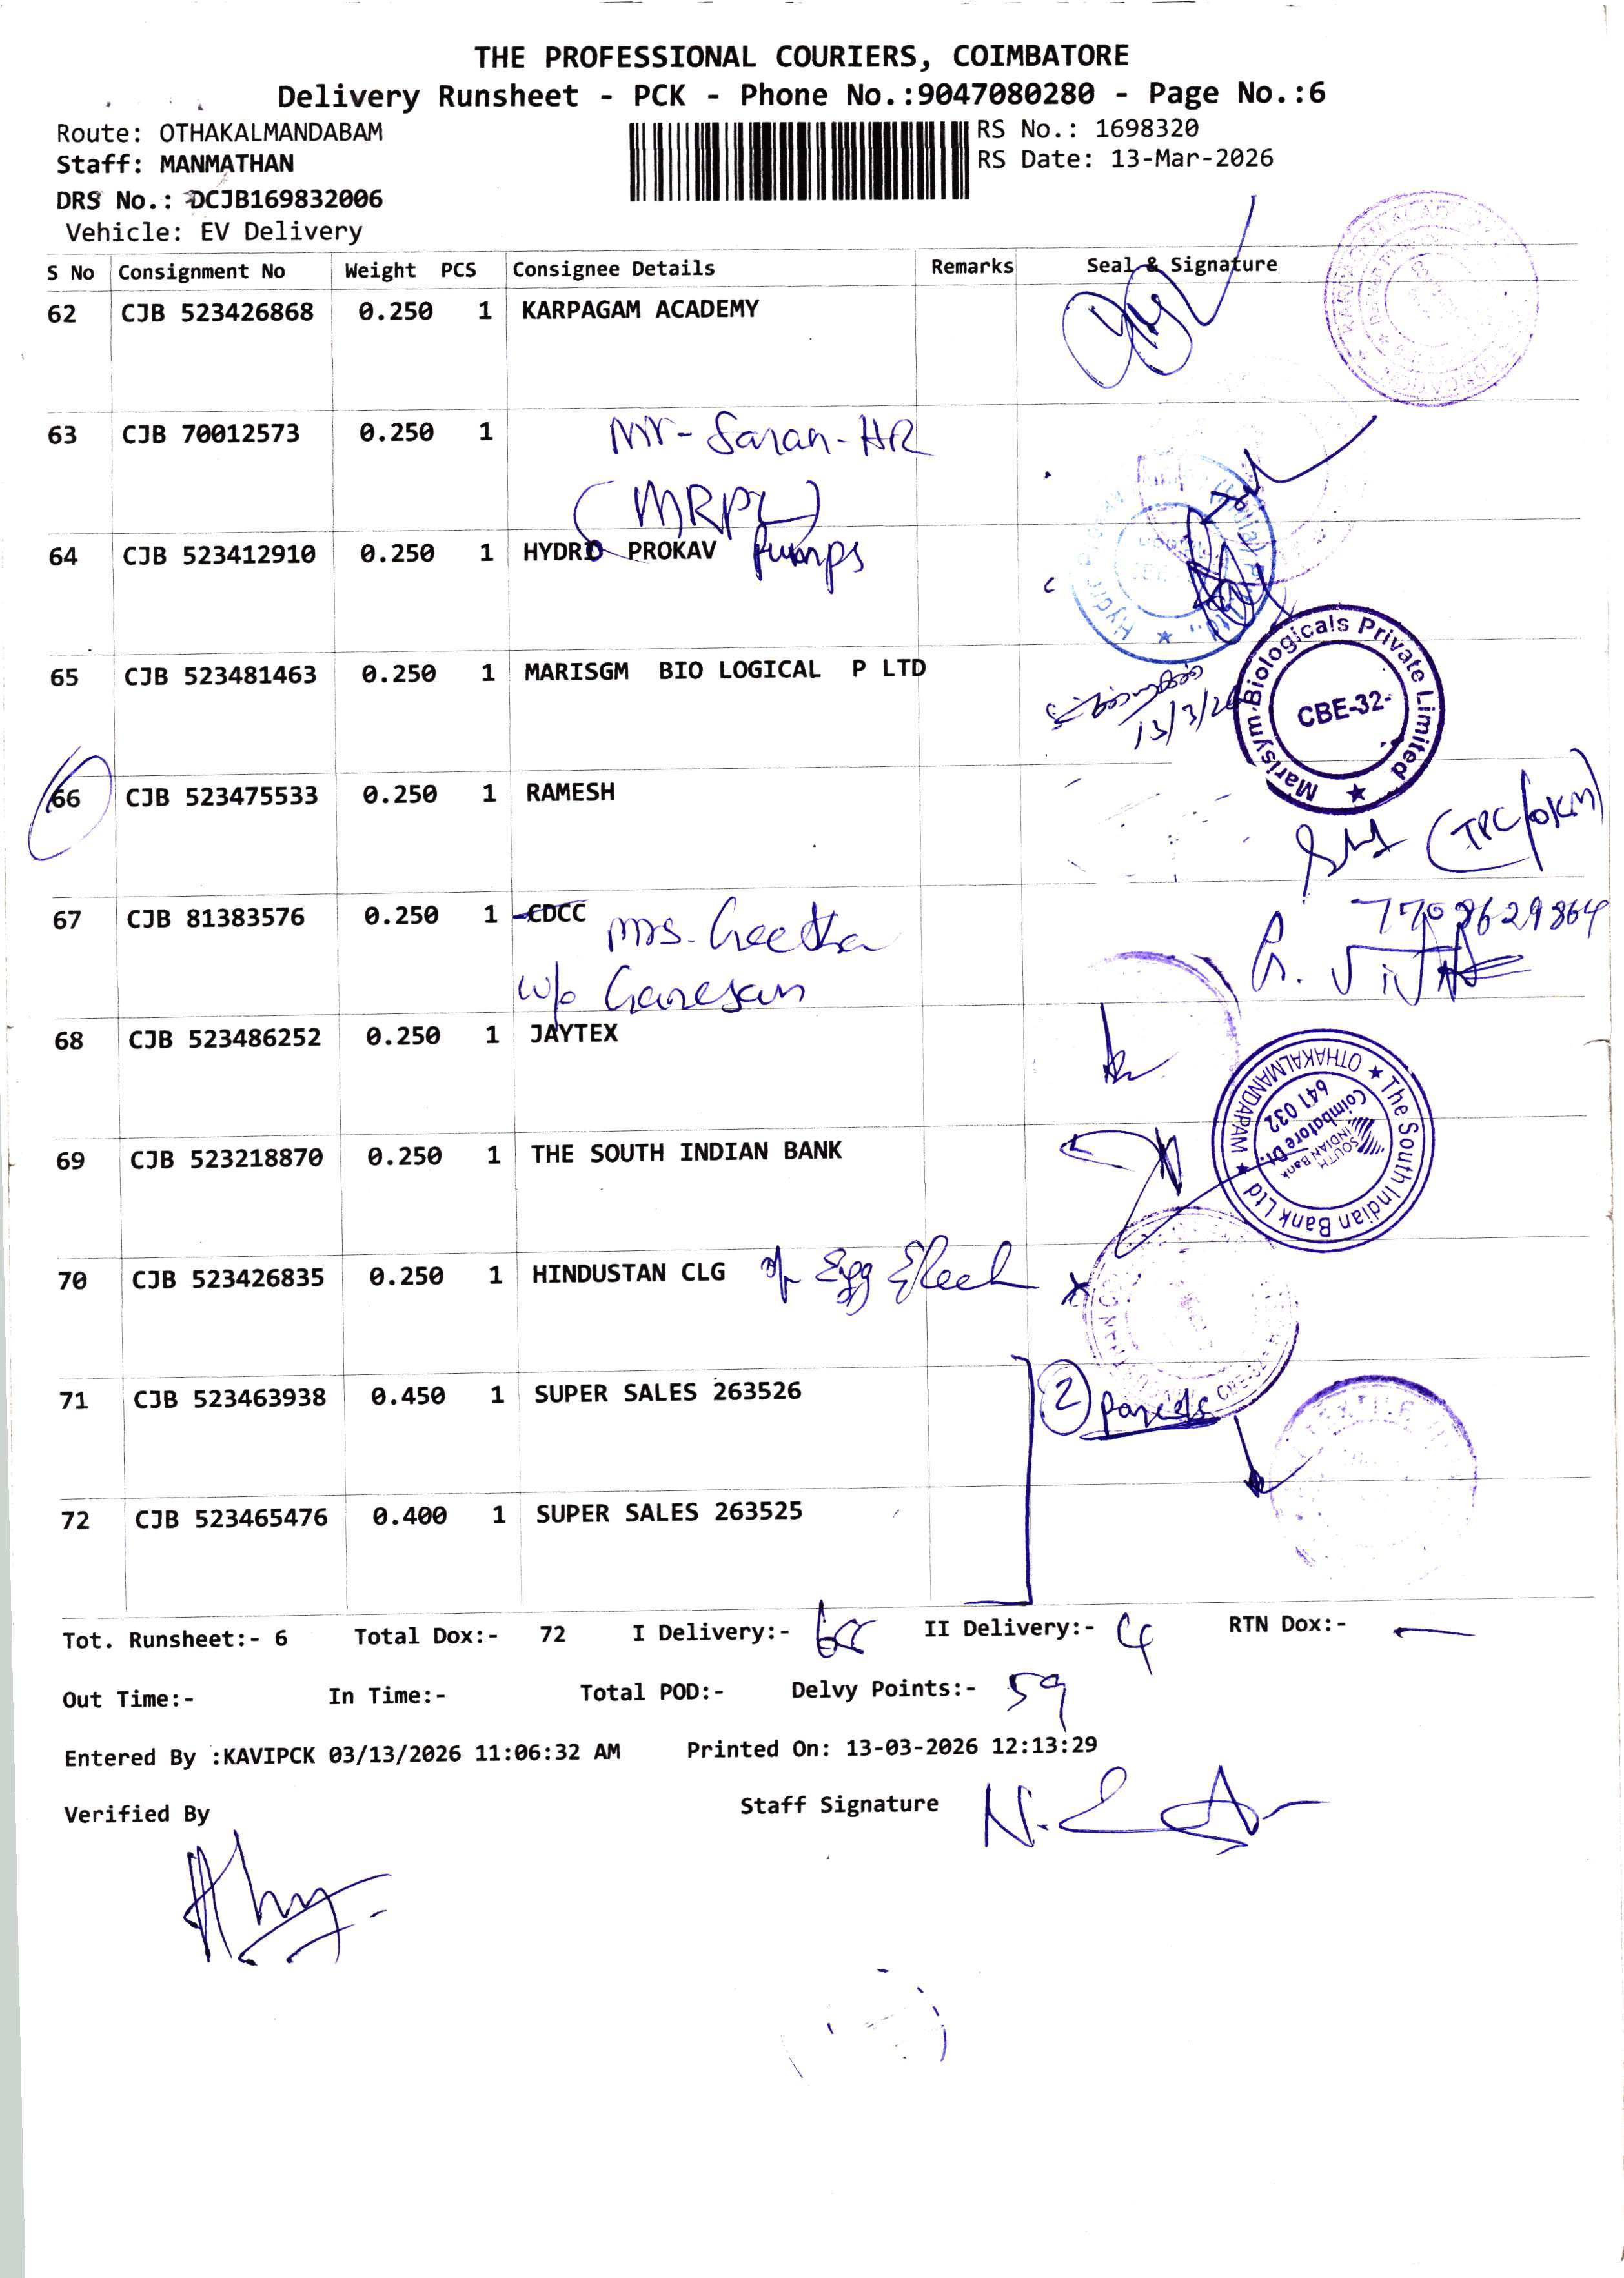 THE PROFESSIONAL COURIERS, COIMBATORE
Delivery Runsheet - PCK - Phone No.:9047080280 - Page No.:6
Route: OTHAKALMANDABAM
RS No.: 1698320
Staff: MANMATHAN
RS Date: 13-Mar-2026
DRS No.: DCJB169832006
Vehicle: EV Delivery
S No Consignment No Weight PCS Consignee Details Remarks Seal & Signature
62 CJB 523426868 0.250 1 KARPAGAM ACADEMY
63 CJB 70012573 0.250 1 Mr-Saran-HR
(MRPL)
64 CJB 523412910 0.250 1 HYDRO PROKAV Pumps
65 CJB 523481463 0.250 1 MARISGM BIO LOGICAL P LTD
13/3/26
Marisym Biologicals Private Limited ★
CBE-32-
66 CJB 523475533 0.250 1 RAMESH
(TPC/OKM)
67 CJB 81383576 0.250 1 CDCC Mrs. Geetha
7708629864
w/o Ganesan
68 CJB 523486252 0.250 1 JAYTEX
★ The South Indian Bank Ltd ★ OTHAKALMANDAPAM
SOUTH INDIAN Bank
Coimbatore Dt.
641 032
69 CJB 523218870 0.250 1 THE SOUTH INDIAN BANK
70 CJB 523426835 0.250 1 HINDUSTAN CLG
71 CJB 523463938 0.450 1 SUPER SALES 263526
2 parcels
72 CJB 523465476 0.400 1 SUPER SALES 263525
Tot. Runsheet:- 6 Total Dox:- 72 I Delivery:- 68 II Delivery:- 4 RTN Dox:- —
Out Time:- In Time:- Total POD:- Delvy Points:- 59
Entered By :KAVIPCK 03/13/2026 11:06:32 AM Printed On: 13-03-2026 12:13:29
Verified By Staff Signature